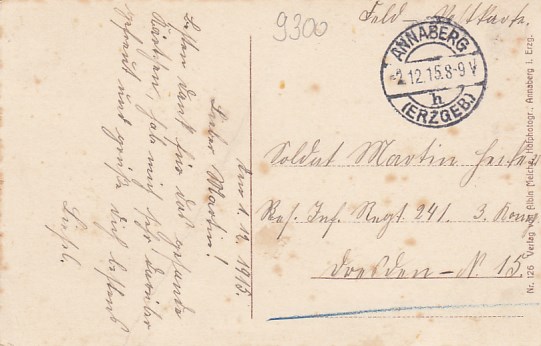 9300
Feld-Postkarte.
ANNABERG
-2.12.15.8-9V
h
(ERZGEB.)
Anna 1. 12. 1915.
Lieber Martin!
Besten Dank für das gesandte
Kärtchen, hab mich sehr darüber
gefreut und grüße dich bestens
Liesel.
Soldat Martin
Res. Inf. Regt. 241. 3. Komp.
Dresden-N. 15.
Nr. 125 Verlag von Albin Meiche, Hofphotogr., Annaberg i. Erzg.